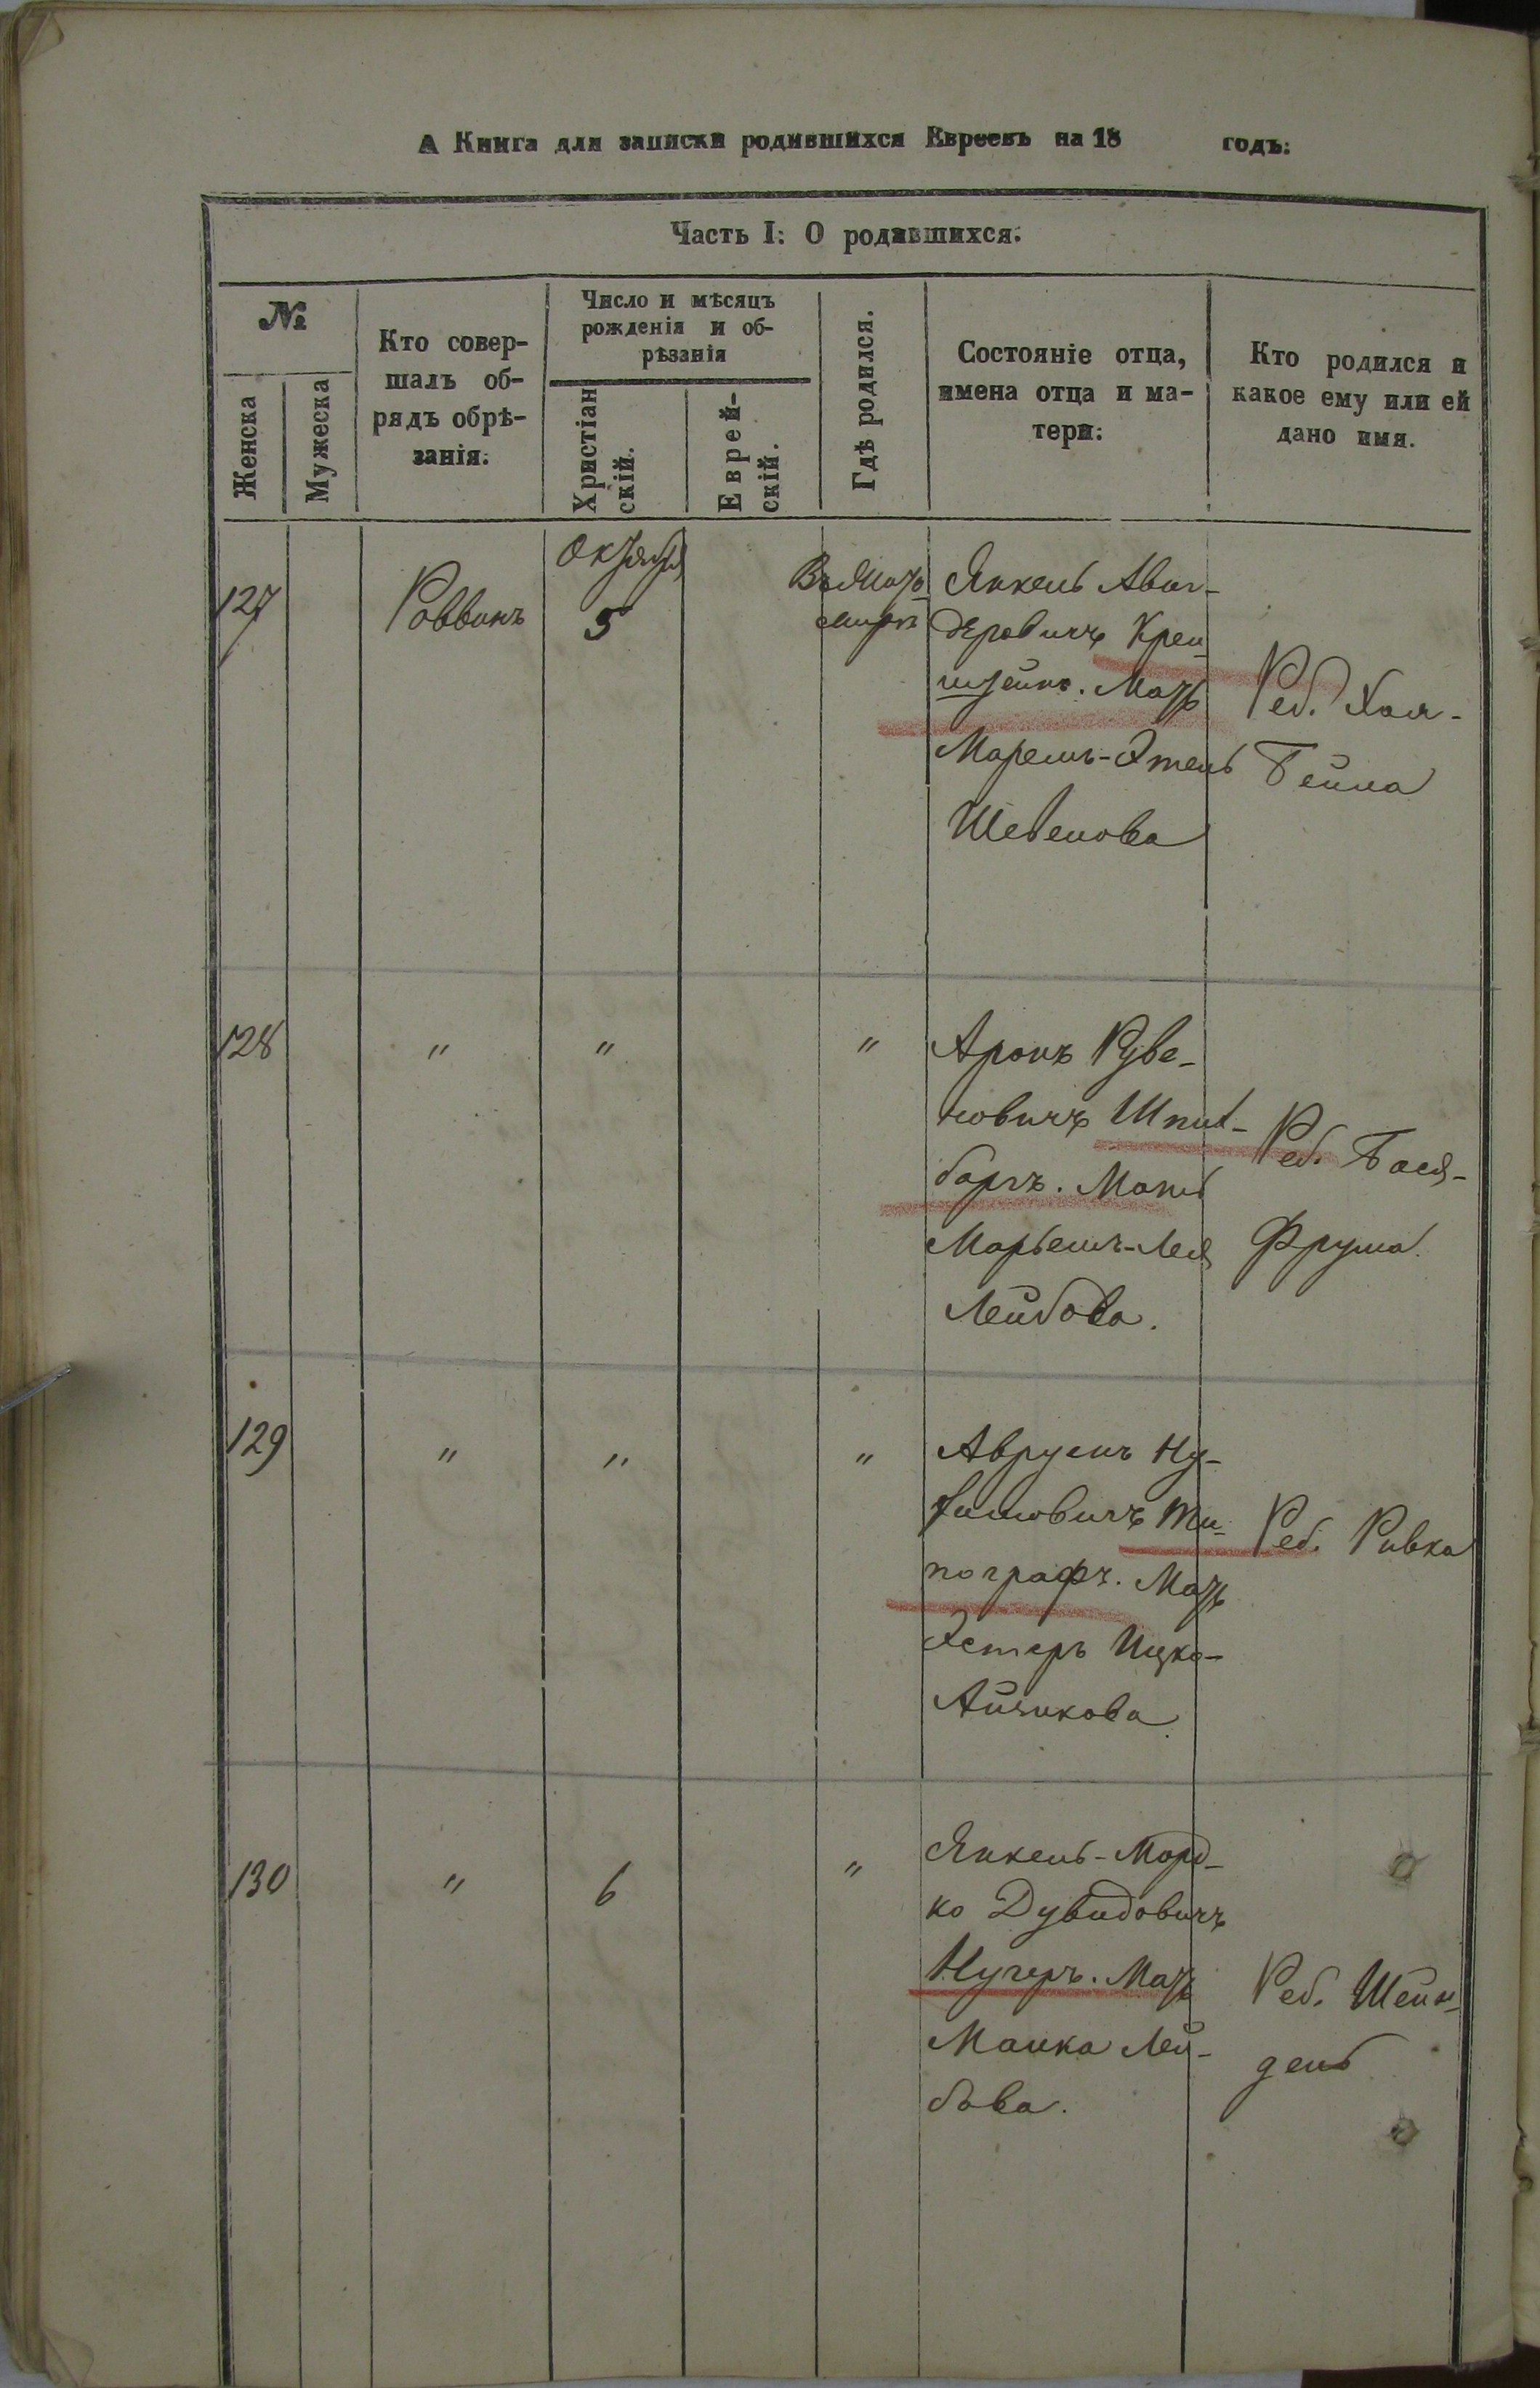 А Книга для записки родившихся Евреевъ на 18 годъ:
Часть I: О родившихся.
№
Женска
Мужеска
Кто совер-
шалъ об-
рядъ обрѣ-
занія.
Число и мѣсяцъ
рожденія и об-
рѣзанія
Христіан
скій.
Еврей-
скій.
Гдѣ родился.
Состояніе отца,
имена отца и ма-
тери:
Кто родился и
какое ему или ей
дано имя.
127
Раввинъ
Октября
5
Янкель Авиг-
деровичъ Крен
штейнъ. Мать
Марьемъ-Этель
Ред. Хая-
Бейла
128
"
"
"
Аронъ Руве-
новичъ Шпил-
баргъ. Мать
Марьемъ-Лея
Лейбова.
Реб. Бася-
Фрума.
129
"
"
"
Аврумъ Ну-
химовичъ Ти-
пографъ. Мать
Эстеръ Ицко-
Айзикова.
Реб. Ривка
130
"
6
"
Янкель-Морд-
ко Дувидовичъ
Кучеръ. Мать
Манка Лей-
бова.
Реб. Шейн-
дель